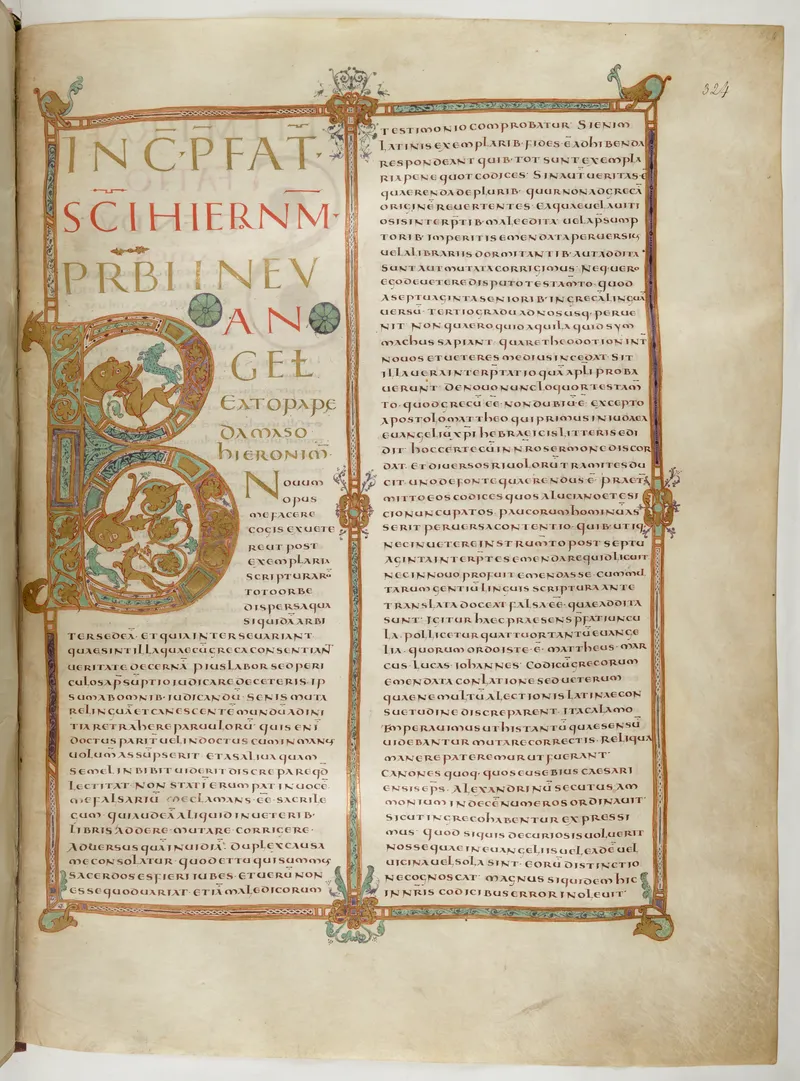 324
INC̄·P̄FAT̄·
SC̄I HIERNM̄·
PRB̄I IN EV
AN
GEŁ
BEATO PAPE
DAMASO
HIERONIM·
Nouum
opus
me facere
cogis exuete
re ut post
exemplaria
scripturarū
toto orbe
dispersa qua
si quidā arbi
ter sedeā· et quia inter se uariant
quae sint illa quae cū greca consentiant
ueritate decernā pius labor sed peri
culosa p̄sūptio iudicare de ceteris· ip
sum ab omnib· iudicandū· senis muta
re linguā et canescentē mundū ad ini
tia retrahere paruulorū· quis enī
doctus pariter uel indoctus cum in manus
uolumen assūpserit· et a saliua quam
semel inbibit uiderit discrepare qd̄
lectitat· non statī erumpat in uocē
me falsariū me clamans eē sacrile
gum· qui audeā aliquid in ueterib·
libris addere· mutare· corrigere·
Aduersus quā inuidiā· duplex causa
me consolatur· quod et tu qui summus
sacerdos es fieri iubes· et uerū non
esse quod uariat· etiā maledicorum
testimonio comprobatur· Si enim
latinis exemplarib· fides ē adhibenda
respondeant quib· tot sunt exempla
ria pene quot codices· Sin aut ueritas ē
quaerenda de plurib· cur non ad grecā
originē reuertentes· ea quae uel a uiti
osis interp̄tib· male edita· uel a p̄sump
torib· imperitis emendata peruersius
uel a librariis dormitantib· aut addita
sunt aut mutata corrigimus· Neq· uero
ego de uetere disputo testam̄to· quod
a septuaginta seniorib· in grecā linguā
uersū· tertio gradu ad nos usq· perue
nit· Non quaero quid aquila quid sym
machus sapiant· quare theodotion int̄
nouos et ueteres medius incedat· Sit
illa uera interp̄tatio quā apl̄i proba
uerunt· De nouo nunc loquor testam̄
to· quod grecū eē non dubiū ē· excepto
apostolo mattheo qui primus in iudaea
euangeliū xp̄i hebraicis litteris edi
dit· hoc certe cū in nr̄o sermone discor
dat· et diuersos riuulorū tramites du
cit· uno de fonte quaerendus ē· Praet̄
mitto eos codices quos a luciano et esi
cio nuncupatos· paucorum hominū as
serit peruersa contentio· quib· utiq·
nec in uetere instrumto post septu
aginta interp̄tes emendare quid licuit
nec in nouo profuit emendasse· cum ml
tarum gentiū linguis scriptura ante
translata doceat falsa eē· quae addita
sunt· Igitur haec praesens p̄fatiuncu
la· pollicetur quattuor tantū euange
lia· quorum ordo iste ē· mattheus· mar
cus· lucas· iohannes· Codicū grecorum
emendata conlatione sed ueterum
quae ne multū a lectionis latinae con
suetudine discreparent· ita calamo
Imperauimus ut his tantū quae sensū
uidebantur mutare correctis· reliqua
manere pateremur ut fuerant·
Canones quoq· quos eusebius caesari
ensis ep̄s· alexandrinū secutus am
monium in decē numeros ordinauit·
sicut in greco habentur expressi
mus· Quod siquis de curiosis uoluerit
nosse quae in euangeliis uel eadē uel
uicina uel sola sint· eorū distinctio
ne cognoscat· magnus siquidem hic
in nr̄is codicibus error inoleuit·